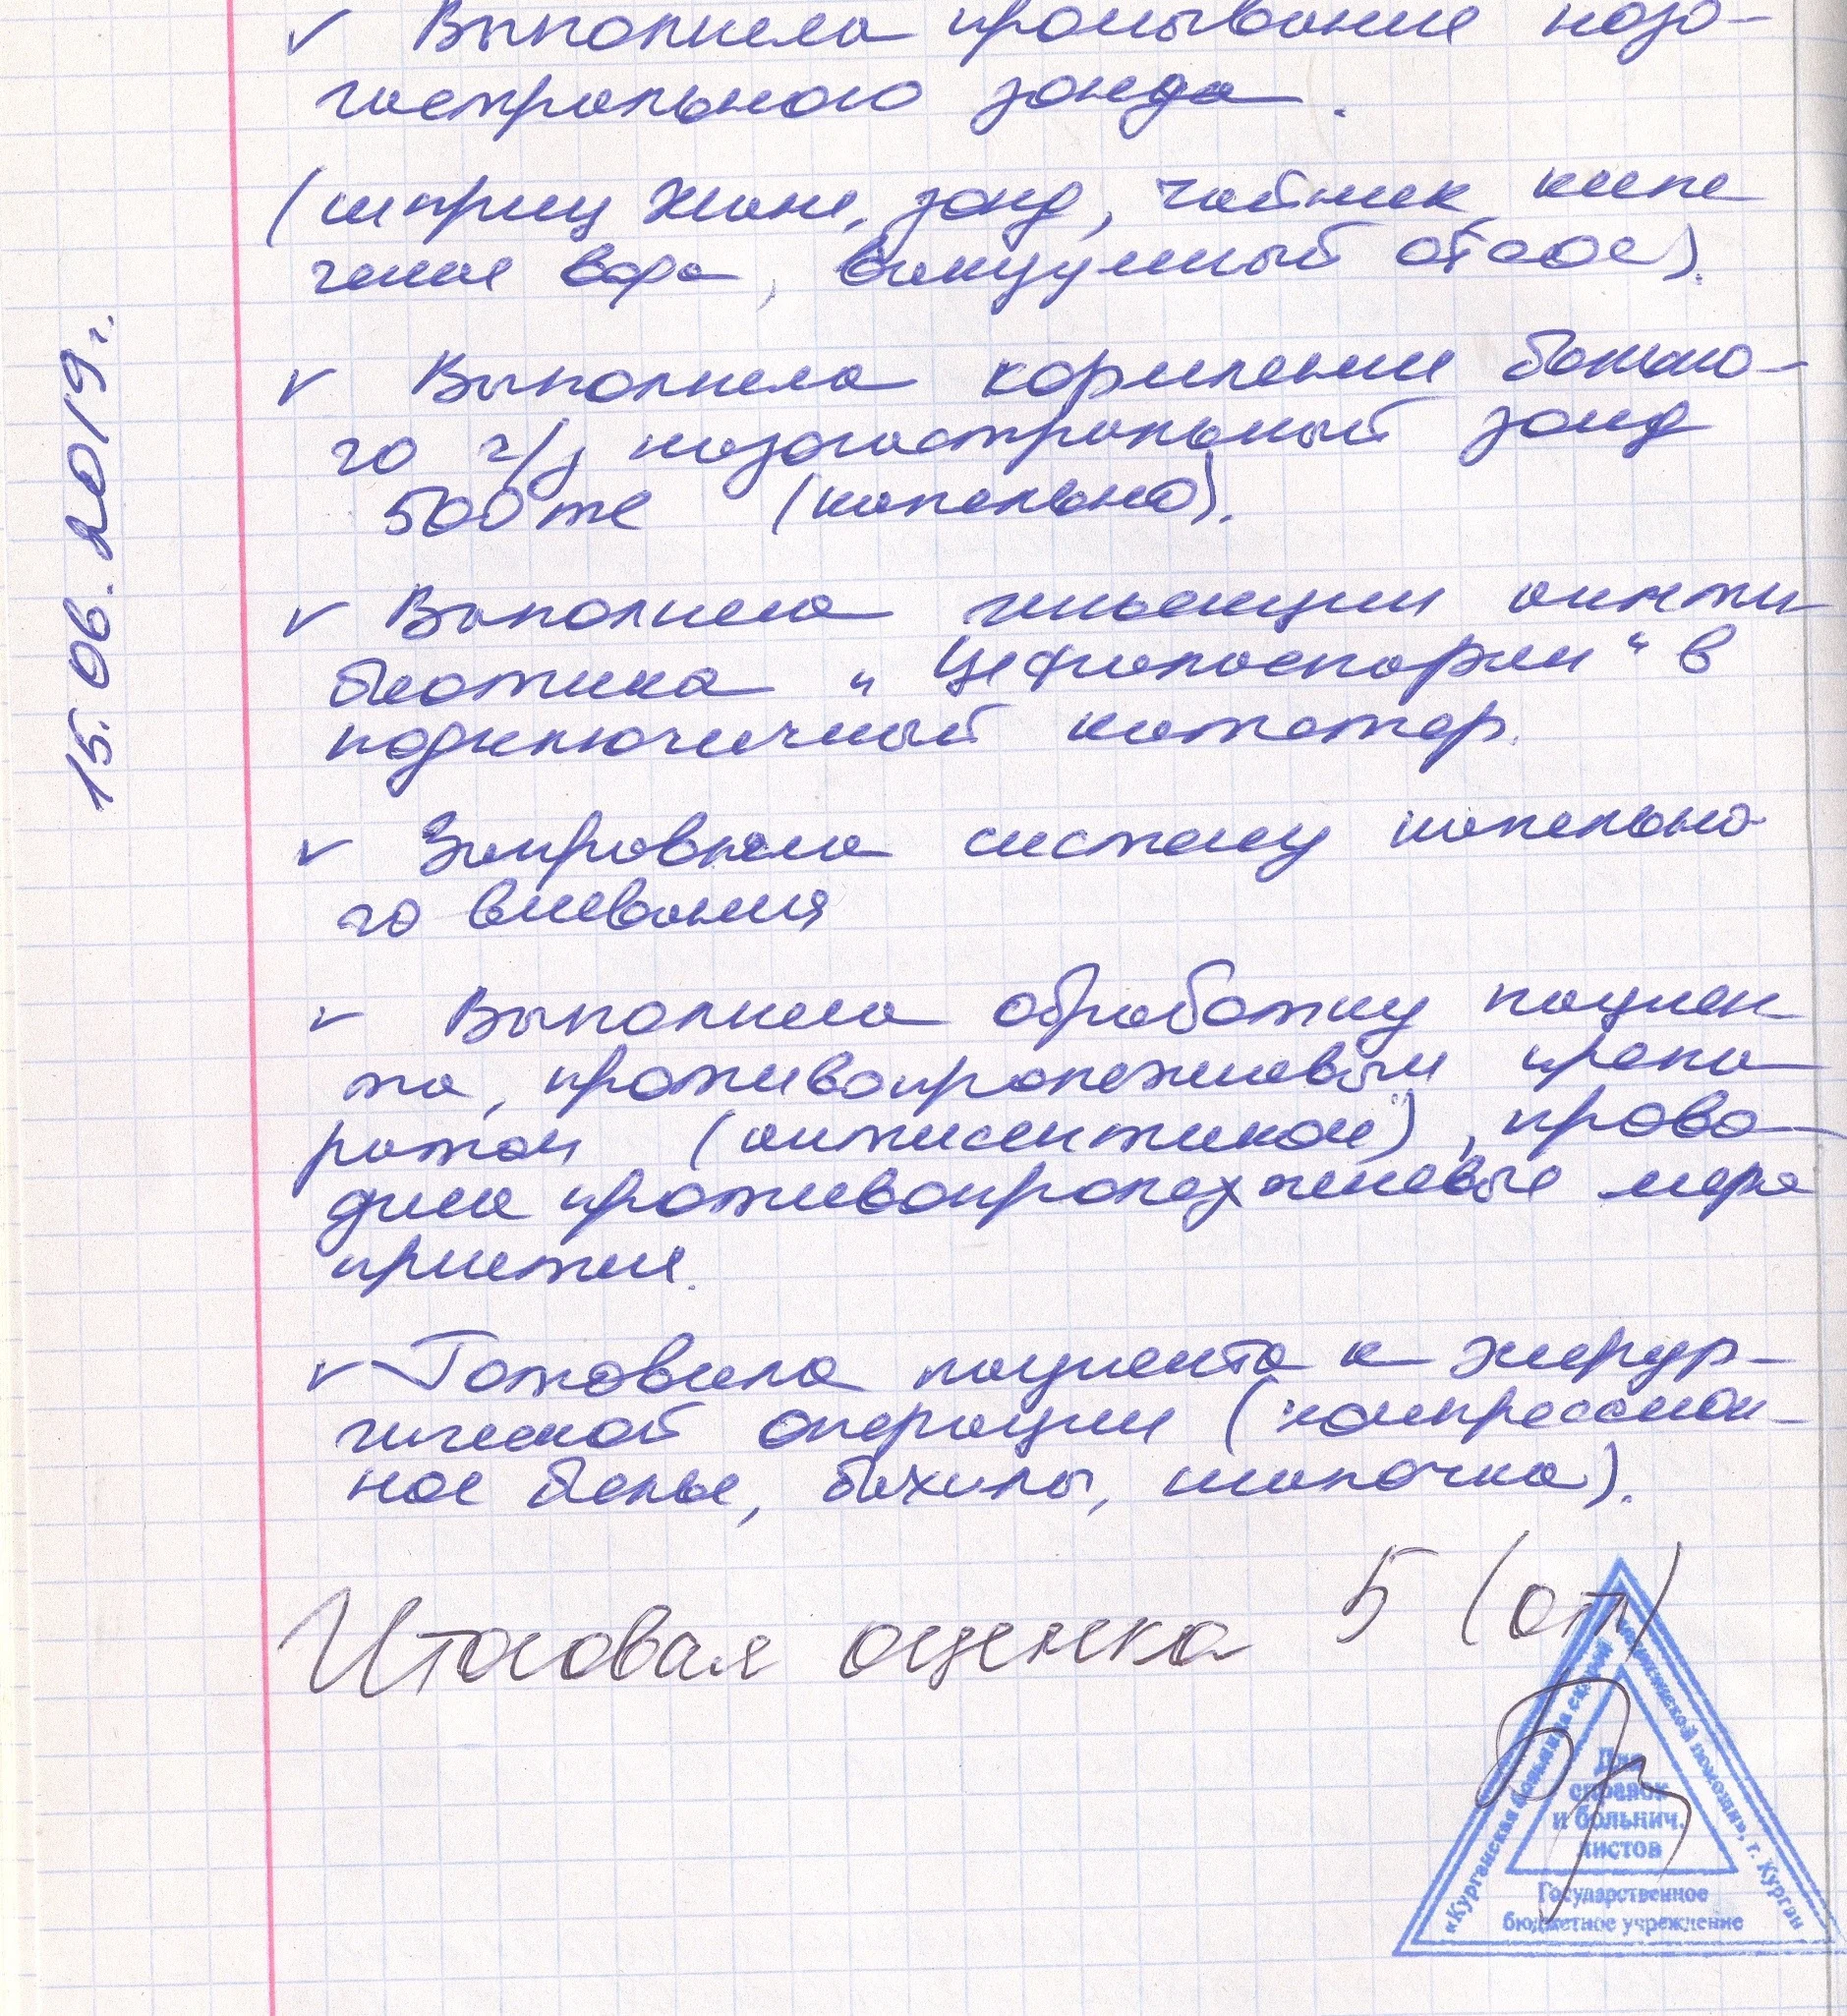 ✓ Выполнила промывание назо-
гастрального зонда.
(шприц Жане, зонд, чайник, кипе
ченая вода, вакуумный отсос).
✓ Выполнила кормлении больно-
го ч/з назогастральный зонд
500 мл (капельно).
✓ Выполнила иньекции анти
биотика „Цефалоспорин“ в
подключичный катетер.
✓ Заправляла систему капельно
го вливания
✓ Выполнила обработку пациен
та, противопролежневым препа
ратом (антисептиком), прово-
дила противопролежневые меро
приятия.
✓ Готовила пациента к хирур-
гической операции (компрессион-
ное белье, бахилы, шапочка).
15.06.2019г.
Итоговая оценка 5 (отл)
«Курганская больница скорой медицинской помощи», г. Курган
Для
справок
и больнич.
листов
Государственное
бюджетное учреждение